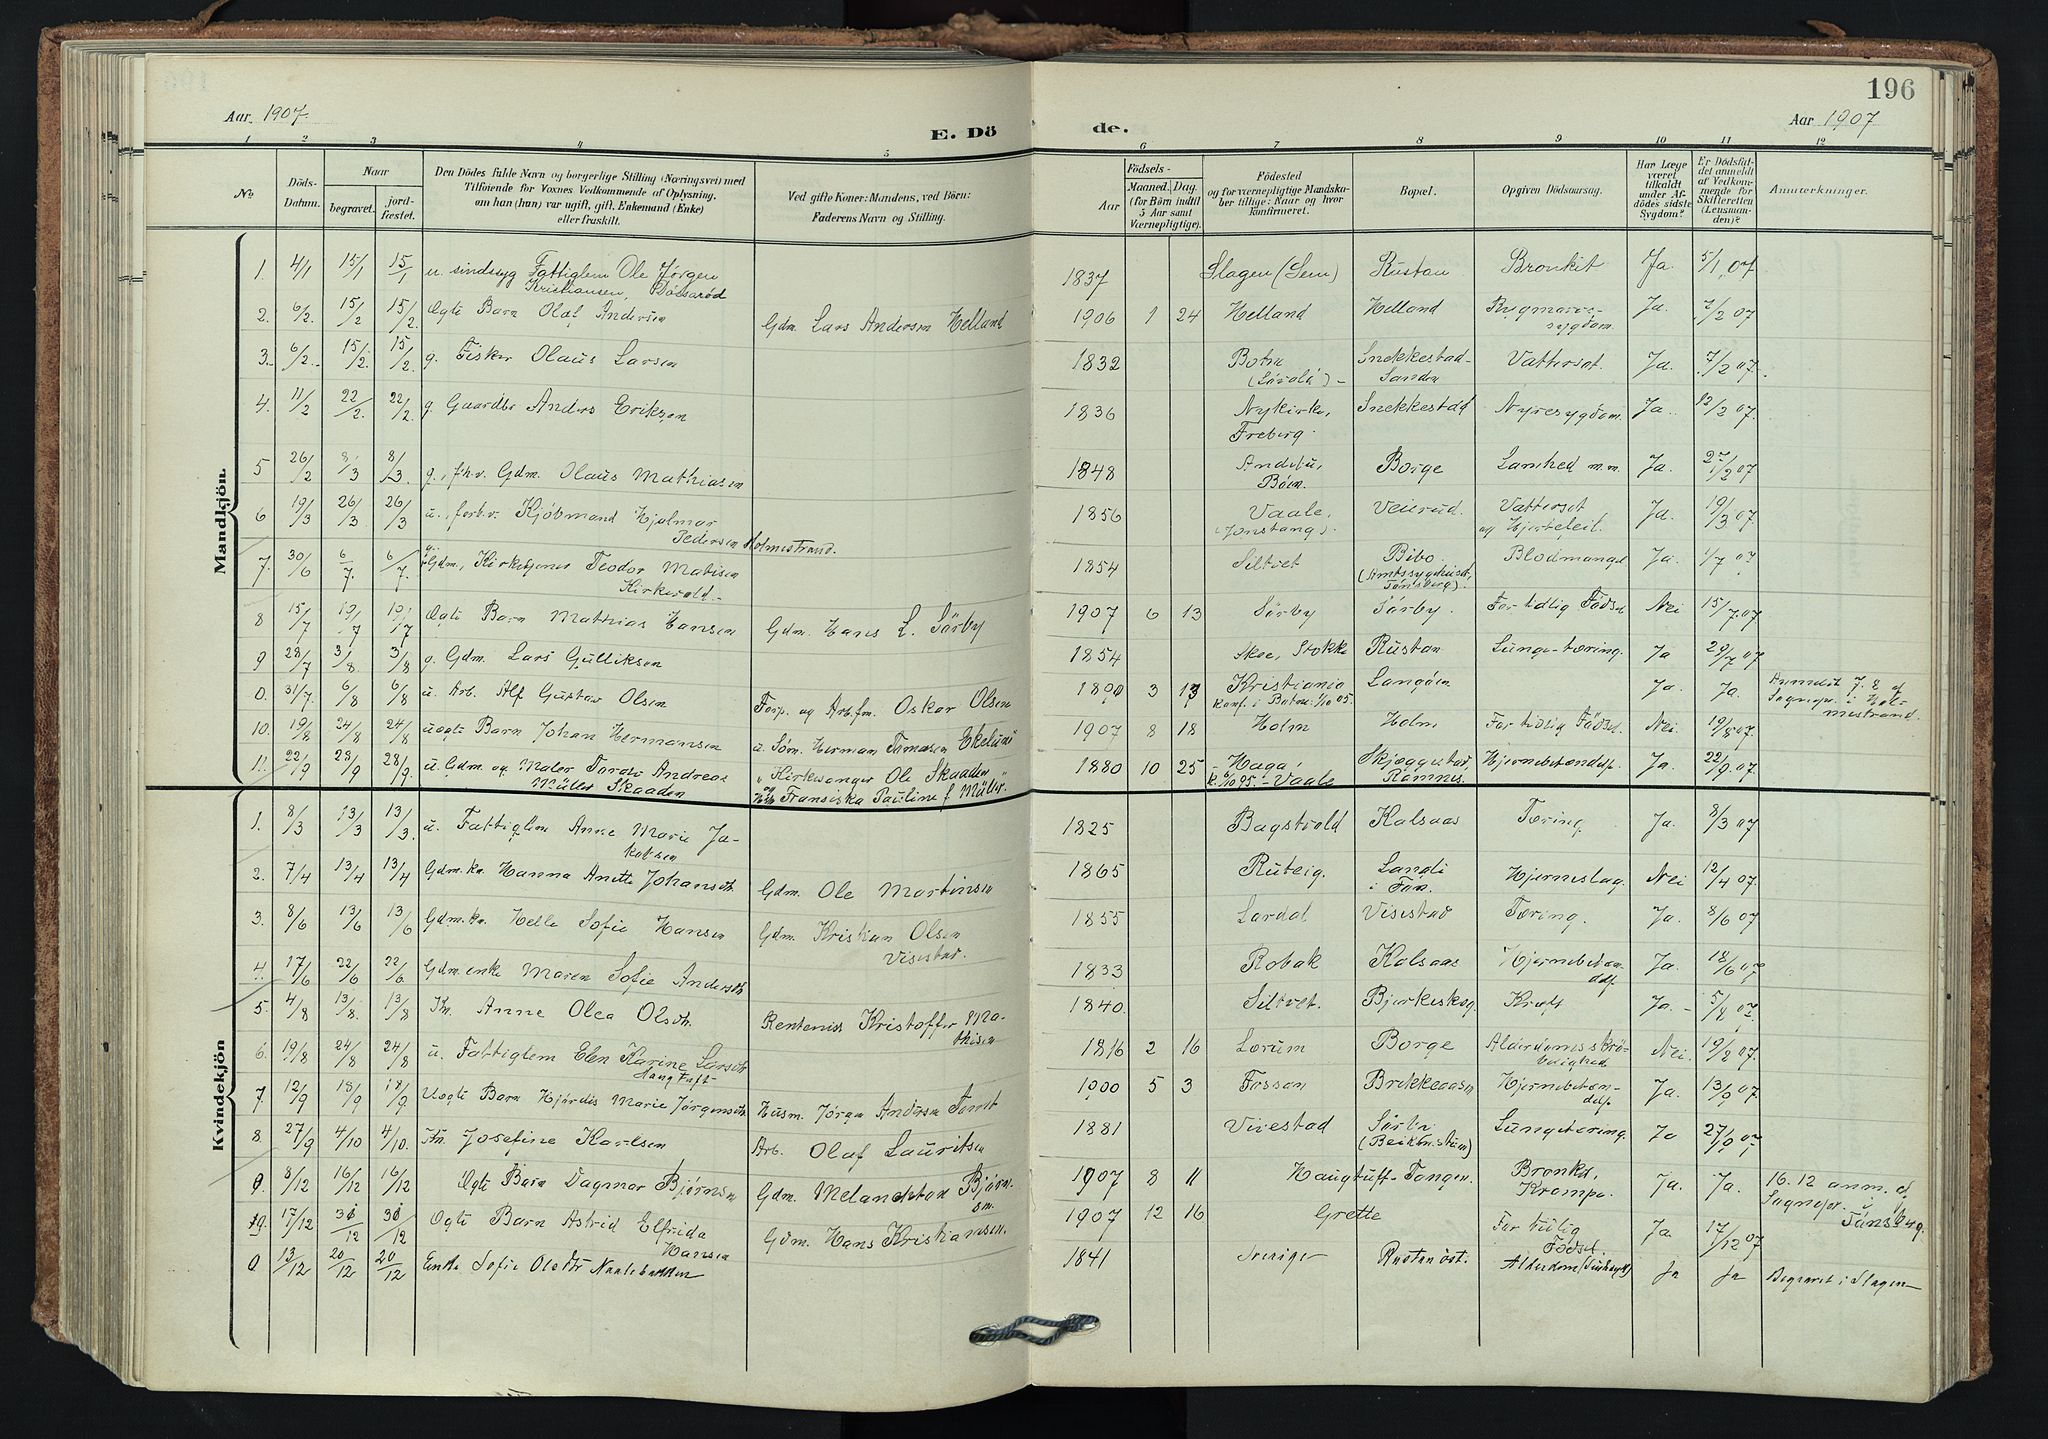 196
Aar 1907. E. Dö de. Aar 1907
1 2 3 4 5 6 7 8 9 10 11 12
No
Döds-Datum.
Naar
begravet.
jord-fæstet.
Den Dödes fulde Navn og borgerlige Stilling (Næringsvei) med
Tilföiende for Voxnes Vedkommende af Oplysning,
om han (hun) var ugift, gift, Enkemand (Enke)
eller fraskilt.
Ved gifte Koner: Mandens, ved Börn:
Faderens Navn og Stilling.
Födsels-
Aar
Maaned. Dag.
(for Börn indtil
5 Aar samt
Værnepligtige).
Födested
og for værnepligtige Mandska-
ber tillige: Naar og hvor
konfirmeret.
Bopæl.
Opgiven Dödsaarsag.
Har Læge
været
tilkaldt
under Af-
dödes sidste
Sygdom?
Er Dödsfal-
det anmeldt
af Vedkom-
mende for
Skifteretten
(Lensman-
den)?
Anmærkninger.
Mandkjön.
1. 4/1 15/1 15/1 u. sindssyg Fattiglem Ole Jørgen 1837 Slagen (Sem) Rustan Bronkit Ja. 5/1 07
Kristiansen,
2. 6/2. 15/2 15/2. Ægte Barn Olaf Andersen Gdm. Lars Andersen Helland 1906 1 24 Helland Helland Rygmarvs- Ja. 7/2 07
sygdom.
3. 6/2. 15/2. 15/2. g. Fisker Olaus Larsen 1832 Botne Snekkestad- Vattersot. Ja. 7/2 07.
Sanden
4. 11/2 22/2. 22/2. g. Gaardbr Anders Eriksen 1836 Nykirke, Snekkestad Nyresygdom. Ja. 12/2 07.
Freberg.
5 26/2 8/3 8/3. g., fhv. Gdm. Olaus Mathiasen 1848 Andebu, Borge Lamhed m.m. Ja. 27/2 07
Böen.
6 19/3 26/3. 26/3 u., forh.v. Kjöbmand Hjalmar 1856 Vaale, Veierud. Vattersot Ja. 19/3 07.
Pedersen Holmestrand. (Jonstang). og Hjertefeil.
7. 30/6 6/7. 6/7. Gdm., Kirketjener Teodor Matisen 1854 Siltvet Bibo Blodmangel Ja. 1/7 07
Kirkevold. (Amtssygehuset, Tönsberg).
8 15/7 19/7 19/7 Ægte Barn Mathias Hansen Gdm. Hans L. Sörby 1907 6 13 Sörby Sörby. For tidlig Födsel Nei 15/7.07
9 28/7 3/8 3/8 g. Gdm. Lars Gulliksen 1854 Skee, Stokke Rustan Lungetæring. Ja 29/7 07
0. 31/7. 6/8 6/8 u. Arb. Alf Gustav Olsen Forp. og Arb.fm. Oskar Olsen 3 17 Kristiania Langöen Ja. Ja. Anmeldt 7.8 af
Konf. i Botne 1/10 05. Sognepr. i Hol-
mestrand.
10. 19/8 24/8 24/8 uægte Barn Johan Hermansen u. Söm. Herman Tomasen Ekelund 1907 8 18 Holm Holm For tidlig Födsel. Nei. 19/8 07.
11. 22/9 28/9 28/9. u. Gdm. og Maler Tordo Andreas " Kirkesanger Ole Skaaden 1880 10 25 Haga Skjæggestad, Hjernebetændelse. Ja. 22/9.07.
Müller Skaaden Fransiska Pauline f. Müller." k. 6/10 95. - Vaale Ramnes
Kvindekjön
1. 8/3 13/3 13/3. u. Fattiglem Anne Marie Ja- 1825 Bagstvold Kalsaas Tæring Ja. 8/3 07
kobsen
2. 7/4 13/4 13/4 Gdm.kn. Hanna Anette Johansdtr Gdm. Ole Martinsen 1865 Ruteig. Langli Hjerneslag. Nei 12/4 07.
i Fon.
3. 8/6 13/6 13/6 Gdm.kn. Helle Sofie Hansen Gdm. Kristian Olsen 1855 Lardal Visestad Tæring. Ja. 8/6 07
Visestad.
4. 17/6 22/6 22/6. Gdm.enke Maren Sofie Andersdtr 1833 Robak Kalsaas Hjernebetæn- Ja. 18/6 07
delse
5. 4/8 13/8. 13/8 Kn. Anne Olea Olsdtr. Rentenist Kristoffer Ma- 1840. Siltvet. Bjerkeskog. Kræft Ja. 5/8 07.
thisen
6. 19/8 24/8 24/8 u. Fattiglem Elen Karine Larsdtr 1816 2 16 Lörum Borge Alderdomsskrö- Nei. 19/ 07.
Haugtuft- belighed
7 12/9 18/9 18/9 Uægte Barn Hjördis Marie Jörgensdtr. Husm. Jörgen Andersen Tomt 1900 5 3 Fossan Brekkeaasen Hjernebetæn- Ja. 13/9 07.
delse
8. 27/9 4/10 4/10. Kn. Josefine Karlsen Arb. Olaf Lauritsen 1881 Vivestad Sörby Lungetæring. Ja 27/9 07
9. 8/12 16/12 16/12 Ægte Barn Dagmar Björnsen Gdm. Melankton Björn- 1907 8 11 Haugtuft-Tangen Bronkit, Ja. Ja. 16.12 anm. af
sen. Krampe. Sognepr. i
Tönsberg.
17/12 30/12 30/12 Ægte Barn Astrid Elfrida Gdm. Hans Kristiansen. 1907 12 16 Grette For tidlig Ja. 17/12 07
Hansen Födsel.
0 13/12 20/12 20/12 Enke Sofie Olsdtr Naalebakken 1841 Sverige Rustan öst. Alderdom Ja Ja Begravet i Slagen